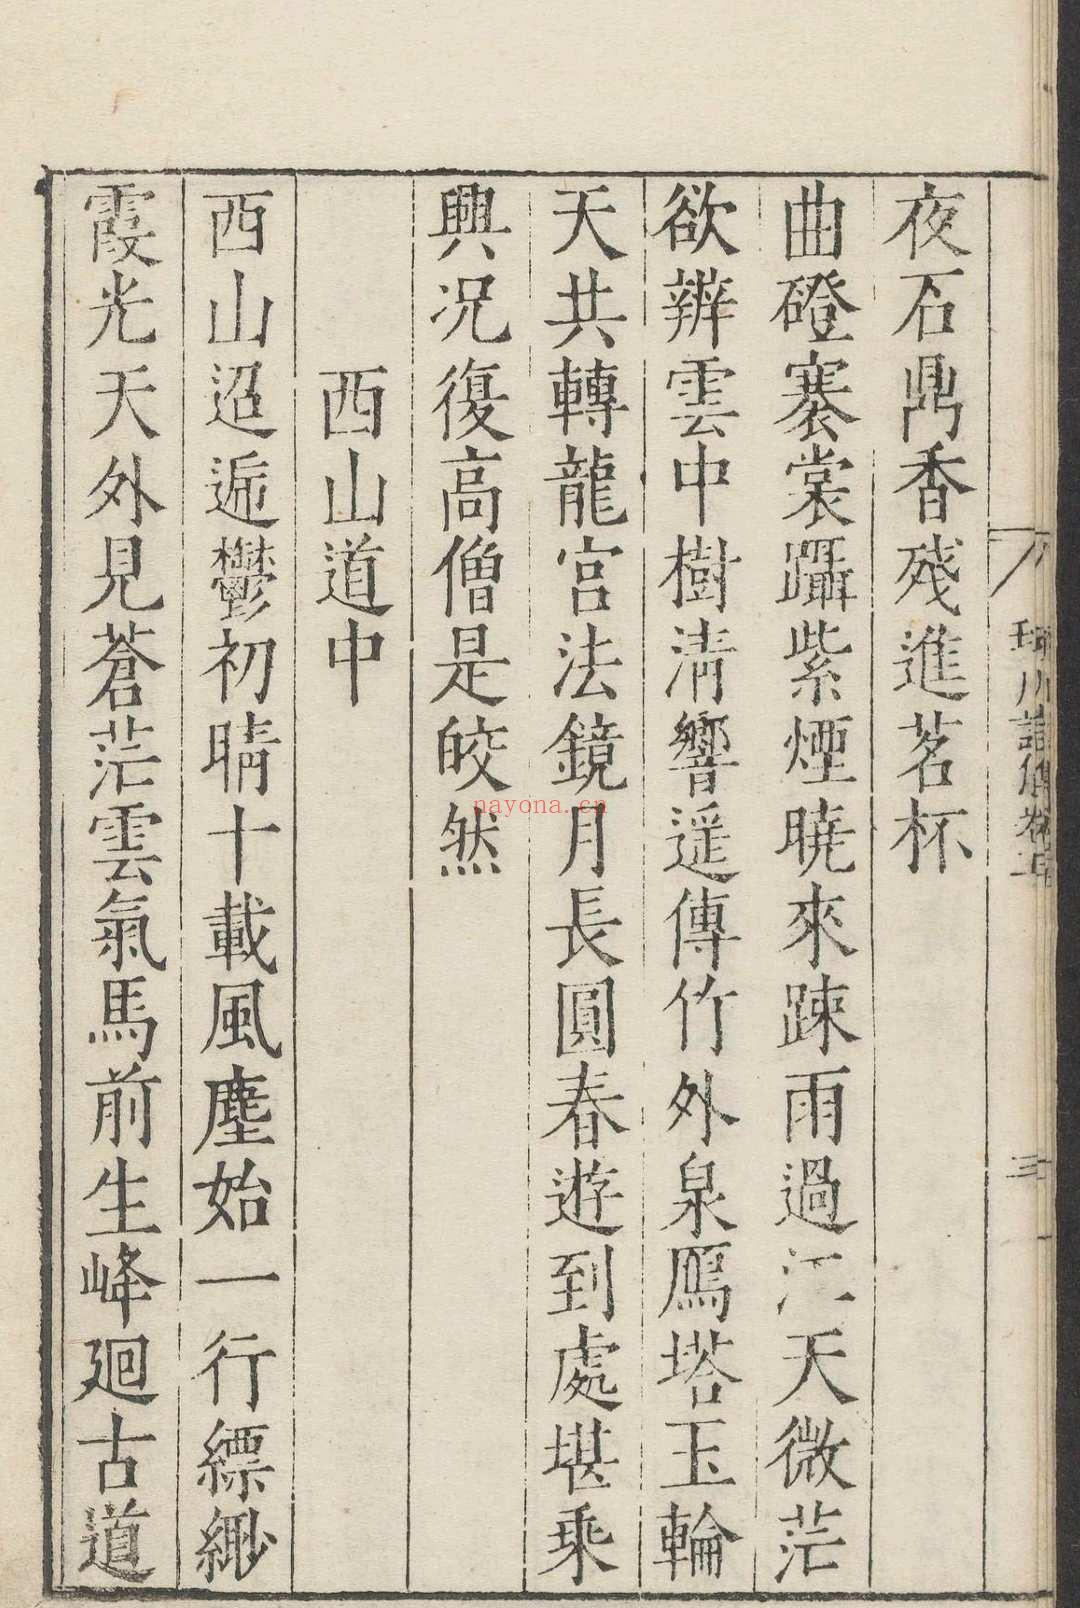 夜石鼎香殘進茗杯
曲磴褰裳躡紫煙曉來踈雨過江天微茫
欲辨雲中樹清響遥傳竹外泉鴈塔玉輪
天共轉龍宮法鏡月長圓春遊到處堪乘
興况復高僧是皎然
西山道中
西山迢遞鬱初晴十載風塵始一行縹緲
霞光天外見蒼茫雲氣馬前生峰廻古道
三
nayona.cn